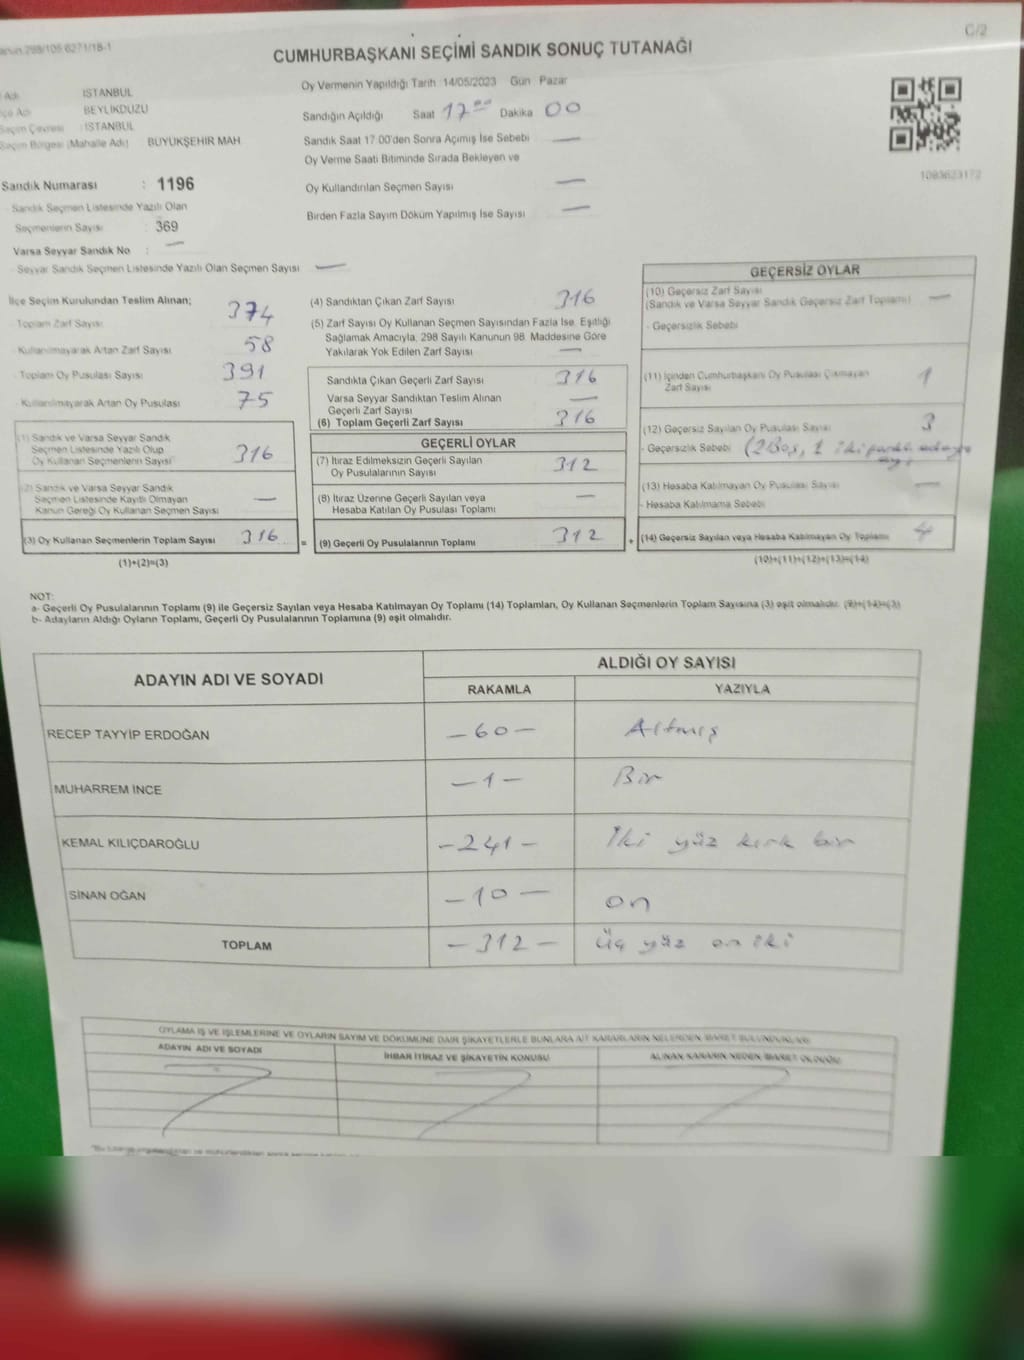 C/2
CUMHURBAŞKANI SEÇİMİ SANDIK SONUÇ TUTANAĞI
İSTANBUL
BEYLİKDÜZÜ
Seçim Çevresi : İSTANBUL
Seçim Bölgesi (Mahalle Adı) BÜYÜKŞEHİR MAH
Sandık Numarası : 1196
Sandık Seçmen Listesinde Yazılı Olan
Seçmenlerin Sayısı : 369
Varsa Seyyar Sandık No : —
- Seyyar Sandık Seçmen Listesinde Yazılı Olan Seçmen Sayısı —
Oy Vermenin Yapıldığı Tarih 14/05/2023 Gün Pazar
Sandığın Açıldığı Saat 17 00 Dakika 00
Sandık Saat 17:00'den Sonra Açılmış İse Sebebi —
Oy Verme Saati Bitiminde Sırada Bekleyen ve
Oy Kullandırılan Seçmen Sayısı —
Birden Fazla Sayım Döküm Yapılmış İse Sayısı —
1083623172
İlçe Seçim Kurulundan Teslim Alınan;
- Toplam Zarf Sayısı 374
- Kullanılmayarak Artan Zarf Sayısı 58
- Toplam Oy Pusulası Sayısı 391
- Kullanılmayarak Artan Oy Pusulası 75
(1) Sandık ve Varsa Seyyar Sandık
Seçmen Listesinde Yazılı Olup
Oy Kullanan Seçmenlerin Sayısı 316
(2) Sandık ve Varsa Seyyar Sandık
Seçmen Listesinde Kayıtlı Olmayan
Kanun Gereği Oy Kullanan Seçmen Sayısı —
(3) Oy Kullanan Seçmenlerin Toplam Sayısı 316
(1)+(2)=(3)
(4) Sandıktan Çıkan Zarf Sayısı 316
(5) Zarf Sayısı Oy Kullanan Seçmen Sayısından Fazla İse, Eşitliği
Sağlamak Amacıyla, 298 Sayılı Kanunun 98. Maddesine Göre
Yakılarak Yok Edilen Zarf Sayısı —
Sandıkta Çıkan Geçerli Zarf Sayısı 316
Varsa Seyyar Sandıktan Teslim Alınan
Geçerli Zarf Sayısı —
(6) Toplam Geçerli Zarf Sayısı 316
GEÇERLİ OYLAR
(7) İtiraz Edilmeksizin Geçerli Sayılan
Oy Pusulalarının Sayısı 312
(8) İtiraz Üzerine Geçerli Sayılan veya
Hesaba Katılan Oy Pusulası Toplamı —
= (9) Geçerli Oy Pusulalarının Toplamı 312
GEÇERSİZ OYLAR
(10) Geçersiz Zarf Sayısı
(Sandık ve Varsa Seyyar Sandık Geçersiz Zarf Toplamı) —
- Geçersizlik Sebebi
(11) İçinden Cumhurbaşkanı Oy Pusulası Çıkmayan
Zarf Sayısı 1
(12) Geçersiz Sayılan Oy Pusulası Sayısı 3
- Geçersizlik Sebebi (2 Boş, 1 iki
(13) Hesaba Katılmayan Oy Pusulası Sayısı —
- Hesaba Katılmama Sebebi
+ (14) Geçersiz Sayılan veya Hesaba Katılmayan Oy Toplamı 4
(10)+(11)+(12)+(13)=(14)
NOT:
a- Geçerli Oy Pusulalarının Toplamı (9) ile Geçersiz Sayılan veya Hesaba Katılmayan Oy Toplamı (14) Toplamları, Oy Kullanan Seçmenlerin Toplam Sayısına (3) eşit olmalıdır. (9)+(14)=(3)
b- Adayların Aldığı Oyların Toplamı, Geçerli Oy Pusulalarının Toplamına (9) eşit olmalıdır.
ADAYIN ADI VE SOYADI
ALDIĞI OY SAYISI
RAKAMLA YAZIYLA
RECEP TAYYİP ERDOĞAN -60- Altmış
MUHARREM İNCE -1- Bir
KEMAL KILIÇDAROĞLU -241- İki yüz kırk bir
SİNAN OĞAN -10- on
TOPLAM -312- Üç yüz on iki
OYLAMA İŞ VE İŞLEMLERİNE VE OYLARIN SAYIM VE DÖKÜMÜNE DAİR ŞİKAYETLERLE BUNLARA AİT KARARLARIN NELERDEN İBARET BULUNDUKLARI
ADAYIN ADI VE SOYADI İHBAR İTİRAZ VE ŞİKAYETİN KONUSU ALINAN KARARIN NEDEN İBARET OLDUĞU